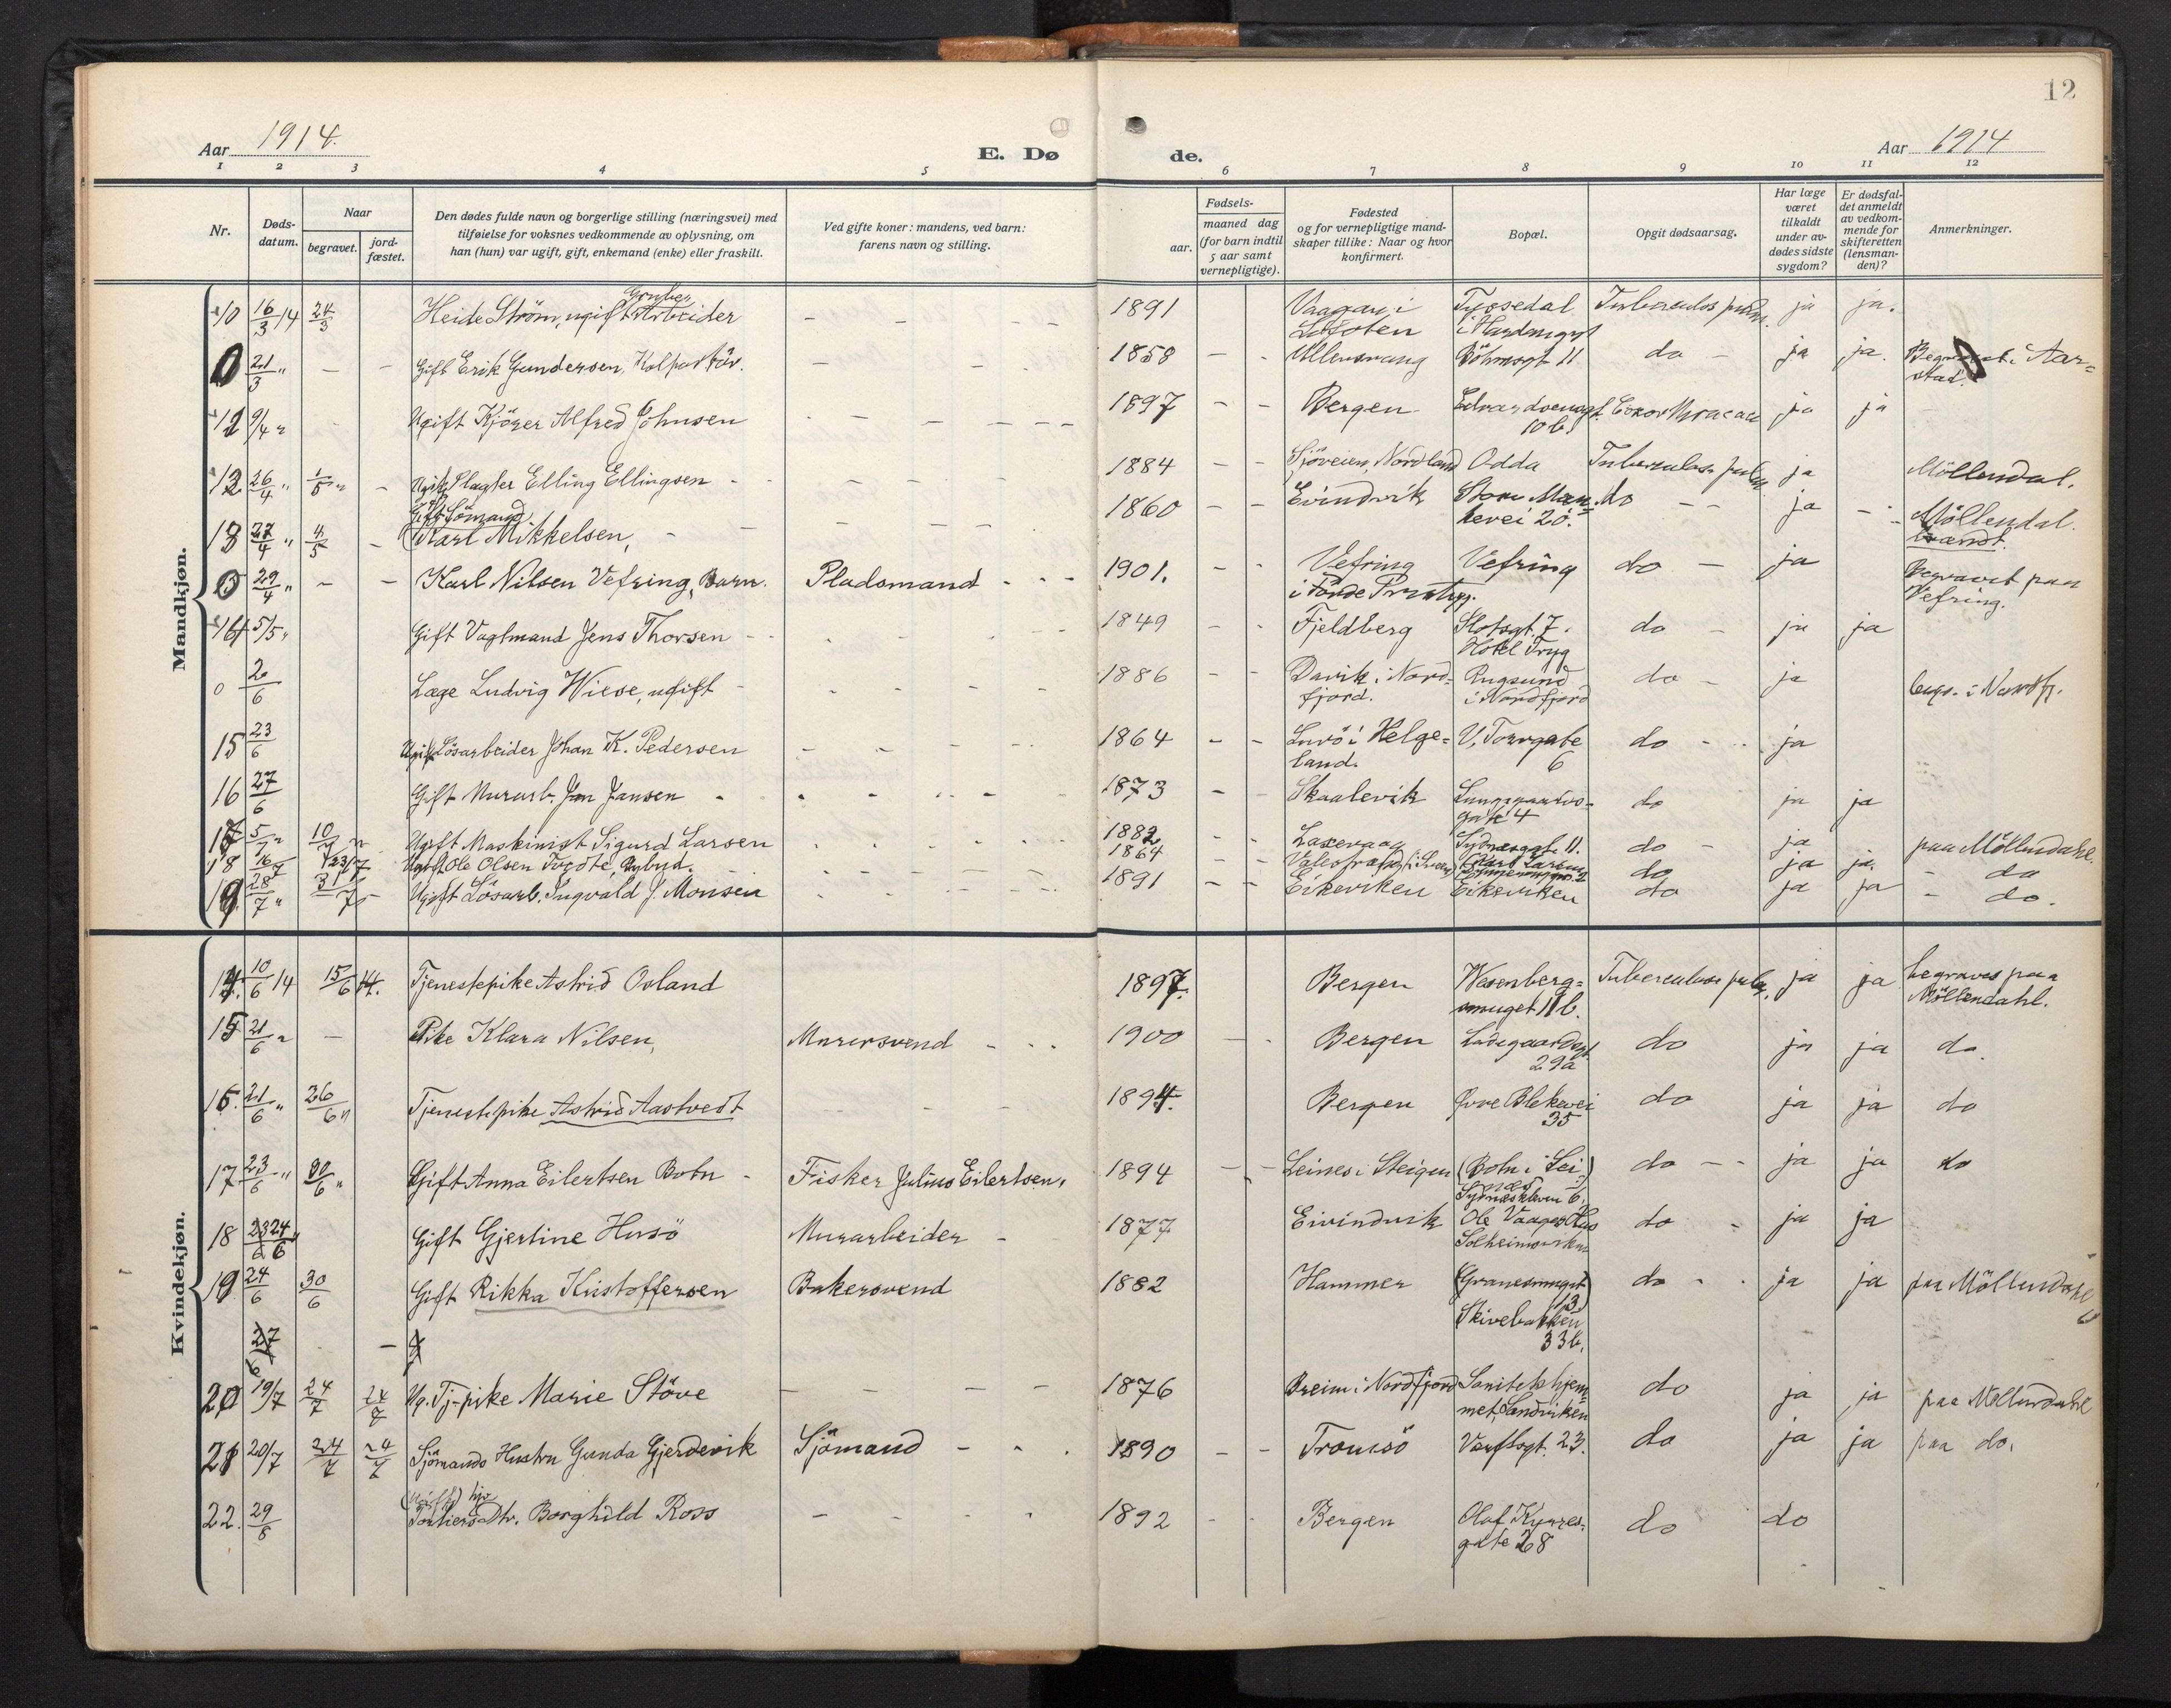 12
Aar 1914.
E. Dø
de.
Aar 1914
1 2 3 4 5 6 7 8 9 10 11 12
Nr.
Døds-
datum.
Naar
begravet.
jord-
fæstet.
Den dødes fulde navn og borgerlige stilling (næringsvei) med
tilføielse for voksnes vedkommende av oplysning, om
han (hun) var ugift, gift, enkemand (enke) eller fraskilt.
Ved gifte koner: mandens, ved barn:
farens navn og stilling.
aar.
Fødsels-
maaned dag
(for barn indtil
5 aar samt
vernepligtige).
Fødested
og for vernepligtige mand-
skaper tillike: Naar og hvor
konfirmert.
Bopæl.
Opgit dødsaarsag.
Har læge
været
tilkaldt
under av-
dødes sidste
sygdom?
Er dødsfal-
det anmeldt
av vedkom-
mende for
skifteretten
(lensman-
den)?
Anmerkninger.
Mandkjøn.
10 16/3 14 24/3 Heide Strøm, ugift Gruber Arbeider 1891 Vaagan i Lofoten Tyssedal i Hardanger Tuberculos pulm. ja ja.
0 21/3 " Gift Erik Gundersen, Kolportör. 1858 Ullensvang Böhmsgt 11. do ja ja. Begravet i Aar=
stad.
12 9/4 " Ugift Kjörer Alfred Johnsen 1897 Bergen Edvardsensgt. 10 b. ja ja
12 26/4 " 1/5 " Ugift Slagter Elling Ellingsen 1884 Sjöveien, Nordland Odda Tuberculos. pulm ja Möllendal.
13 27/4 " 4/5 Gift Sömand
Karl Mikkelsen, 1860 Evindvik Store Mar=
kevei 20. do ja Möllendal.
brændt.
0 29/4 " Karl Nilsen Vefring, Barn. Pladsmand 1901. Vefring
i Förde Prstgj. Vefring do ja Begravet paa
Vefring.
14 5/5 " Gift Vagtmand Jens Thorsen 1849 Fjeldberg Slotsgt. 7.
Hotel Tryg do ja ja
0 2/6 Læge Ludvig Wiese, ugift 1886 Davik i Nord=
fjord. Rugsund
i Nordfjord do ja begr. i Nordfj.
15 23/6 Ugift Løsarbeider Johan K. Pedersen 1864 Lurö i Helge=
land. V. Torvgate
6 do ja
16 27/6 Gift Murarb. Jan Jansen 1873 Skaalevik Lungegaards-
gate 4 do ja ja
17 5/7 " 10/7 " Ugift Maskinist Sigurd Larsen 1882 Laxevaag Sydnesgt. 11. do ja paa Möllendahl.
18 16/7 23/7 Ugift Ole Olsen 1864 do ja ja. do
19 28/7 " 31/7 Ugift Lösarb. Ingvald J. Monsen 1891 Eikeviken Eikeviken do ja ja do.
Kvindekjøn.
14. 10/6 14 15/6 14. Tjenestepike Astrid Osland 1897. Bergen Wesenberg=
smuget 11 b. Tuberculose pulm. ja ja begraves paa
Möllendahl.
15 21/6 " Pike Klara Nilsen, Murersvend 1900 Bergen Ladegaardsgt
29a do ja ja do.
16. 21/6 " 26/6 " Tjenestepike Astrid Aastvedt 1894. Bergen Øvre Blekevei
35 do ja ja do
17 23/6 " 30/6 " Gift Anna Eilertsen Botn Fisker Julius Eilertsen, 1894 Leines i Steigen (Botn i Lei:)
nes
Sydneskleven 6. do ja ja do
18 23 24/6 " Gift Gjertine Husö Murarbeider 1877 Eivindvik Ole Vaages Hus
Solheimsviken do ja ja
19 24/6 30/6 Gift Rikka Kristoffersen Bakersvend 1882 Hammer (Granesmuget
13)
Skivebakken
33b. do ja ja paa Möllendahl
27/6
20 19/7 24/7 24/7 Ug. Tj-pike Marie Støve 1876 Breim i Nordfjord Sanitetshjem-
met, Sandviken do ja ja paa Möllendahl
21 20/7 24/7 24/7 Sjömands Hustru Gunda Gjerdevik Sjömand 1890 Tromsö Vestlogt. 23. do ja ja paa do.
22. 29/8 (Ugift) hjv
Portiers Dtr. Borghild Ross 1892 Bergen Olaf Kyrres-
gate 28 do do